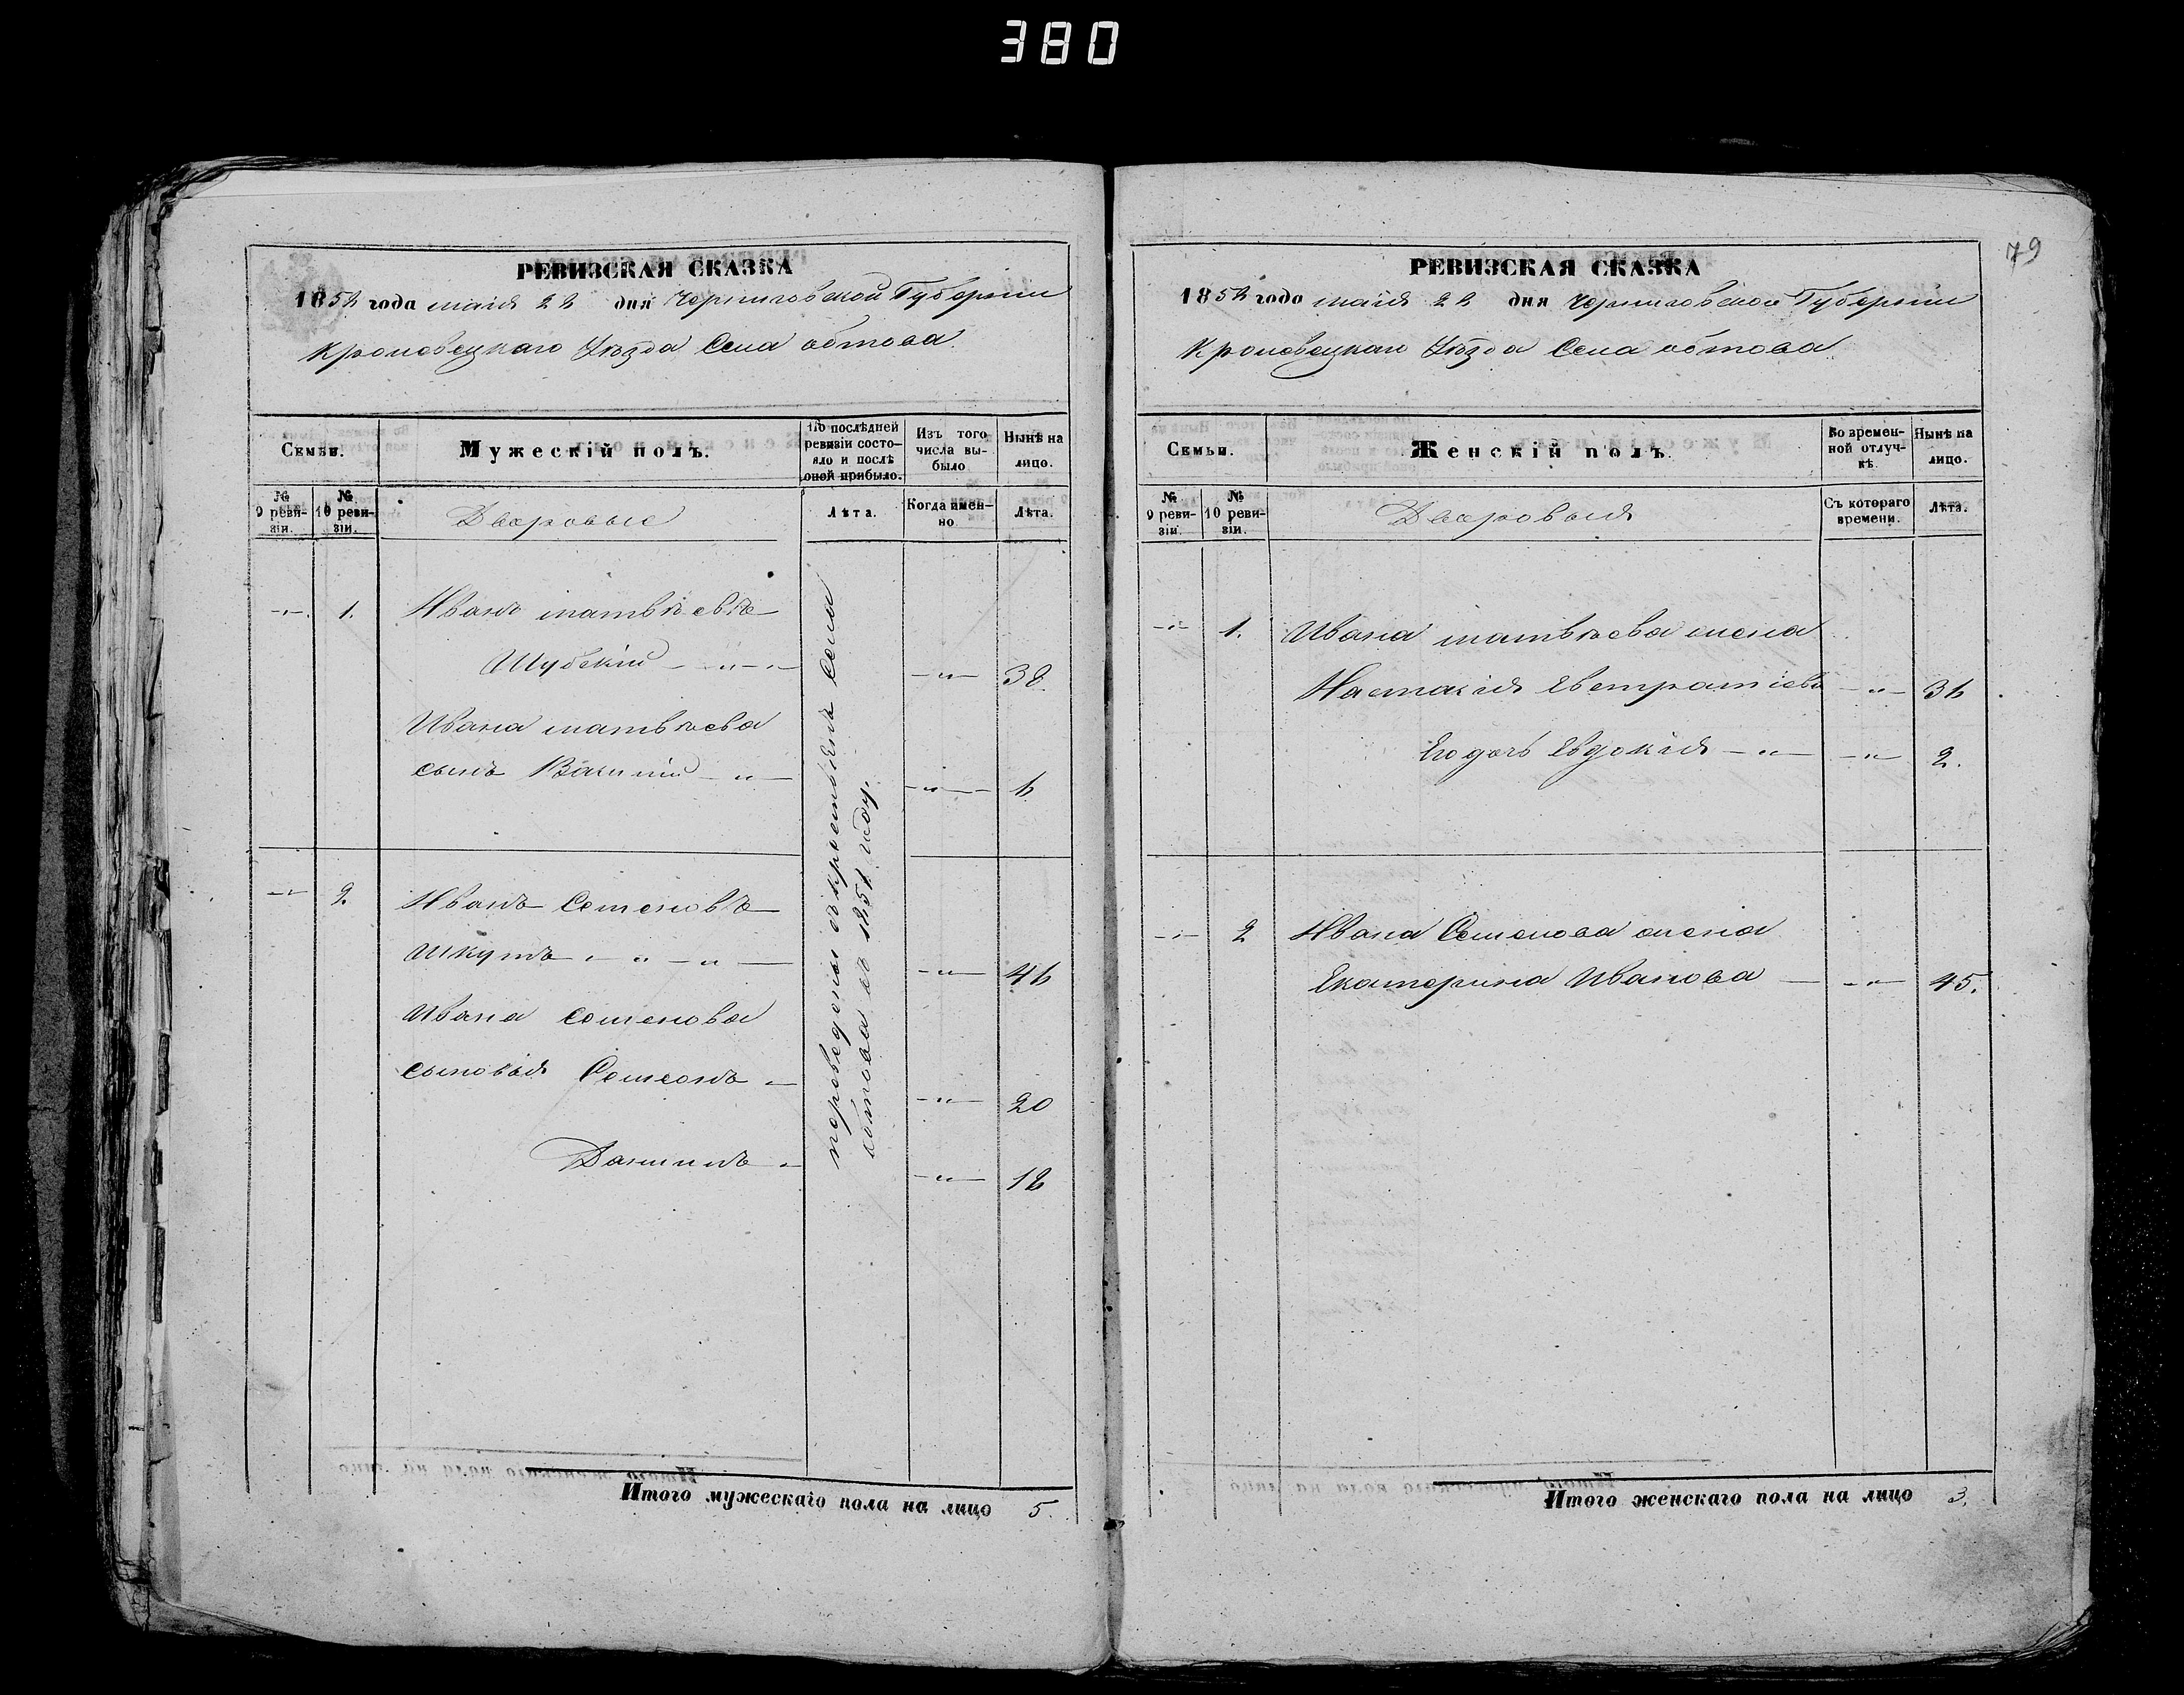 380
РЕВИЗСКАЯ СКАЗКА
1858 года маія 22 дня Черниговской Губерніи
Кролевецкаго Уѣзда Села обтова
Семьи.
Мужескій полъ.
По послѣдней ревизіи состояло и послѣ оной прибыло.
Изъ того числа выбыло
Нынѣ на лицо.
№ 9 ревизіи.
№ 10 ревизіи.
Дворовые
Лѣта.
Когда именно
Лѣта.
-"- 1. Иванъ матвѣевъ
Шубскій - " - -"- 38.
Ивана матвѣева
сынъ Василій - " - -"- 6
-"- 2. Иванъ Семеновъ
Шкутъ - " - " - -"- 46
Ивана Семенова
сыновья Семенъ - -"- 20
Даниилъ - -"- 18
переведены изъ крестьянъ Села
обтова въ 1851 году.
Итого мужескаго пола на лицо 5.
79
РЕВИЗСКАЯ СКАЗКА
1858 года маія 22 дня Черниговской Губерніи
Кролевецкаго Уѣзда Села обтова
Семьи.
Женскій полъ.
Во временной отлучкѣ.
Нынѣ на лицо.
№ 9 ревизіи.
№ 10 ревизіи.
Дворовыя
Съ котораго времени.
Лѣта.
-"- 1. Ивана матвѣева жена
Настасія Евстратіева -"- 36
Его дочь Евдокія - " - -"- 2.
-"- 2 Ивана Семенова жена
Екатерина Иванова - -"- 45.
Итого женскаго пола на лицо 3.